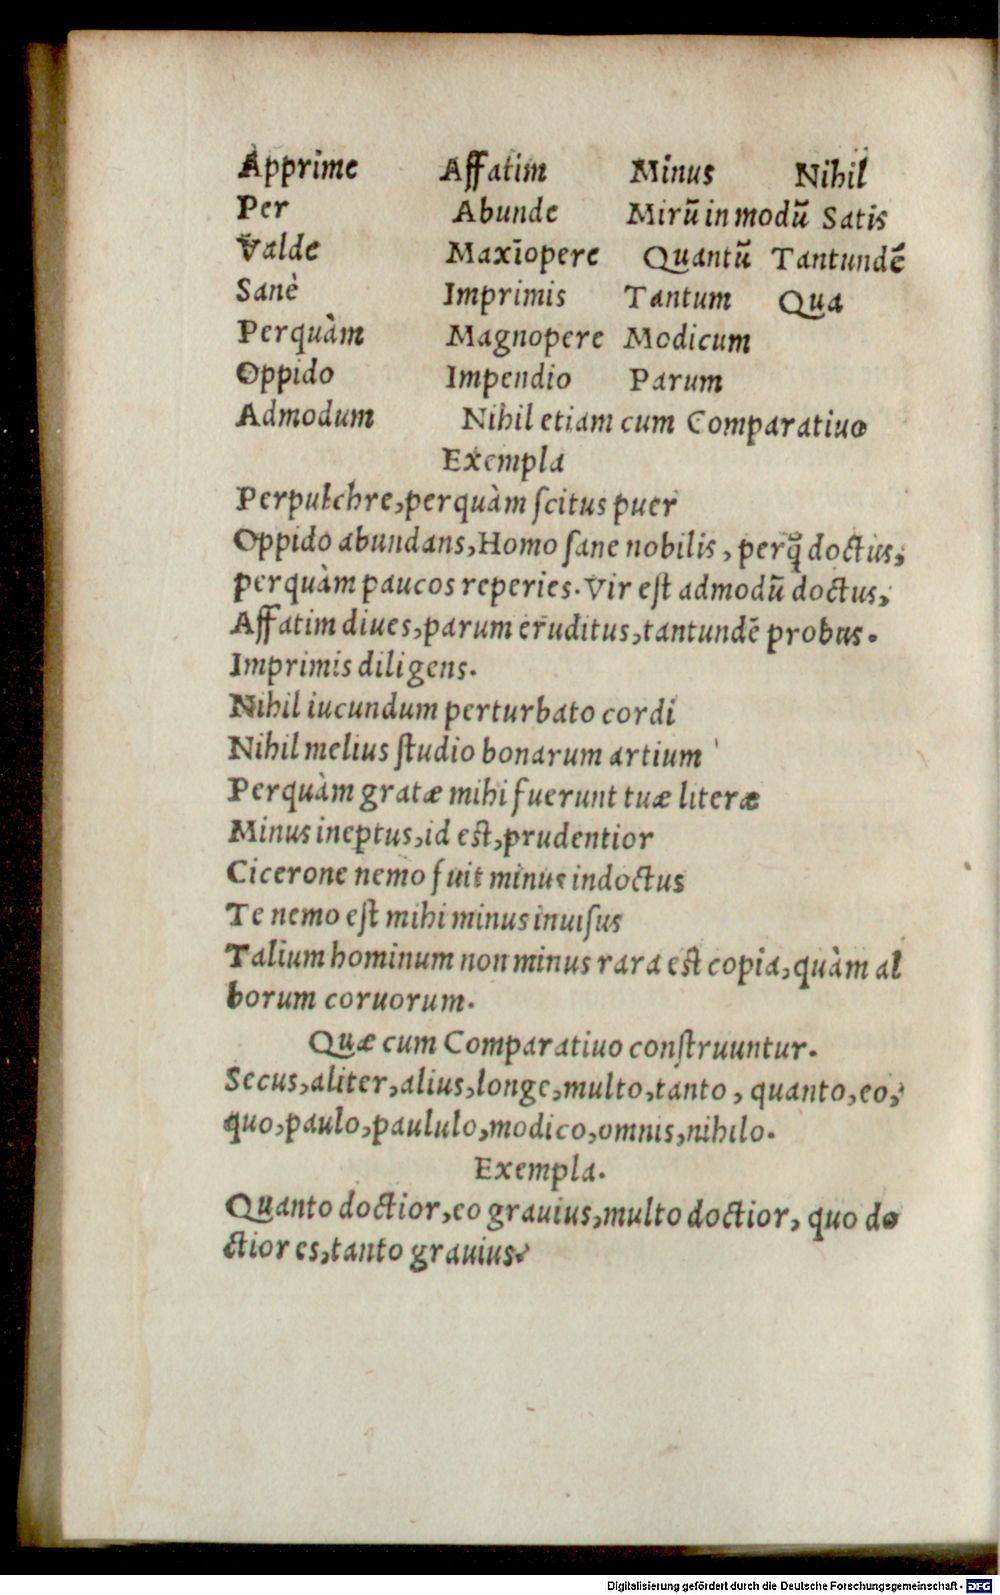 Apprime Affatim Minus Nihil
Per Abunde Mirũ in modũ Satis
Valde Maxĩopere Quantũ Tantundẽ
Sanè Imprimis Tantum Qua
Perquàm Magnopere Modicum
Oppido Impendio Parum
Admodum Nihil etiam cum Comparatiuo
Exempla
Perpulchre,perquàm ſcitus puer
Oppido abundans,Homo ſane nobilis, perq̃ doctus,
perquàm paucos reperies. Vir eſt admodũ doctus,
Affatim diues,parum eruditus,tantundẽ probus.
Imprimis diligens.
Nihil iucundum perturbato cordi
Nihil melius ſtudio bonarum artium
Perquàm gratæ mihi fuerunt tuæ literæ
Minus ineptus,id eſt,prudentior
Cicerone nemo fuit minus indoctus
Te nemo eſt mihi minus inuiſus
Talium hominum non minus rara eſt copia,quàm al
borum coruorum.
Quæ cum Comparatiuo conſtruuntur.
Secus,aliter,alius,longe,multo,tanto, quanto,eo,
quo,paulo,paululo,modico,omnis,nihilo.
Exempla.
Quanto doctior,eo grauius,multo doctior, quo do
ctior es,tanto grauius.
Digitalisierung gefördert durch die Deutsche Forschungsgemeinschaft - DFG